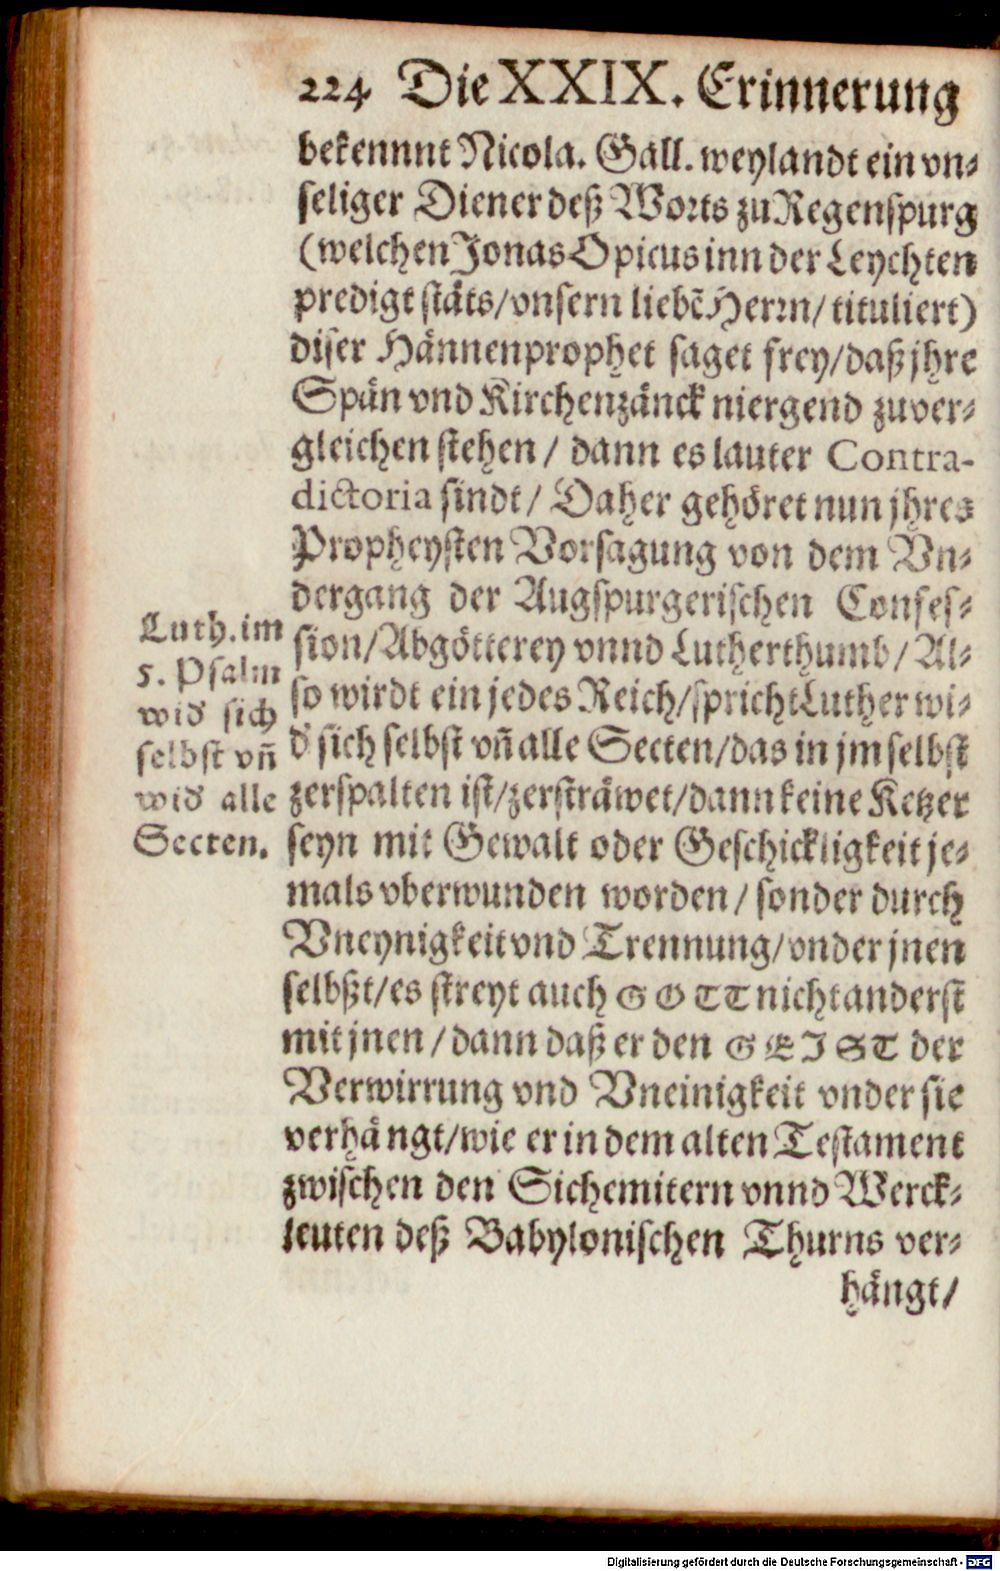 224 Die XXIX. Erinnerung
bekennt Nicola. Gall. weylandt ein vn⸗
seliger Diener deß Worts zu Regenspurg
(welchen Jonas Opicus inn der Leychten
predigt stäts/vnsern liebẽ Herrn/ tituliert)
diser Hännenprophet saget frey/daß jhre
Spän vnd Kirchenzänck niergend zuver⸗
gleichen stehen/ dann es lauter Contra-
dictoria sindt/ Daher gehöret nun jhres
Propheysten Vorsagung von dem Vn⸗
dergang der Augspurgerischen Confes⸗
sion/Abgötterey vnnd Lutherthumb/ Al⸗
so wirdt ein jedes Reich/spricht Luther wi⸗
d' sich selbst vñ alle Secten/das in jm selbst
zerspalten ist/zersträwet/dann keine Ketzer
seyn mit Gewalt oder Geschickligkeit je⸗
mals vberwunden worden/ sonder durch
Vneynigkeit vnd Trennung/vnder jnen
selbßt/es streyt auch GOTT nicht anderst
mit jnen/dann daß er den GEIST der
Verwirrung vnd Vneinigkeit vnder sie
verhängt/wie er in dem alten Testament
zwischen den Sichemitern vnnd Werck⸗
leuten deß Babylonischen Thurns ver⸗
hängt/
Luth. im
5. Psalm
wid' sich
selbst vñ
wid' alle
Secten.
Digitalisierung gefördert durch die Deutsche Forschungsgemeinschaft - DFG